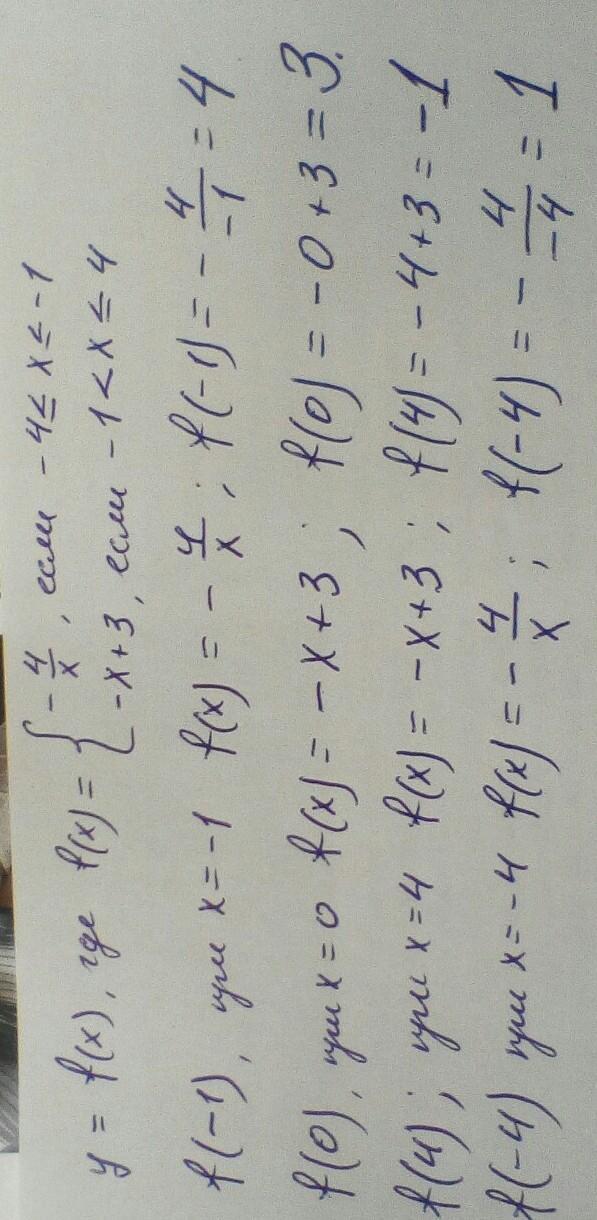 y = f(x), где f(x) = { -4/x, если -4 ≤ x ≤ -1
-x+3, если -1 < x ≤ 4
f(-1), при x = -1 f(x) = -4/x; f(-1) = -4/-1 = 4
f(0), при x = 0 f(x) = -x+3; f(0) = -0+3 = 3.
f(4); при x = 4 f(x) = -x+3; f(4) = -4+3 = -1
f(-4) при x = -4 f(x) = -4/x; f(-4) = -4/-4 = 1